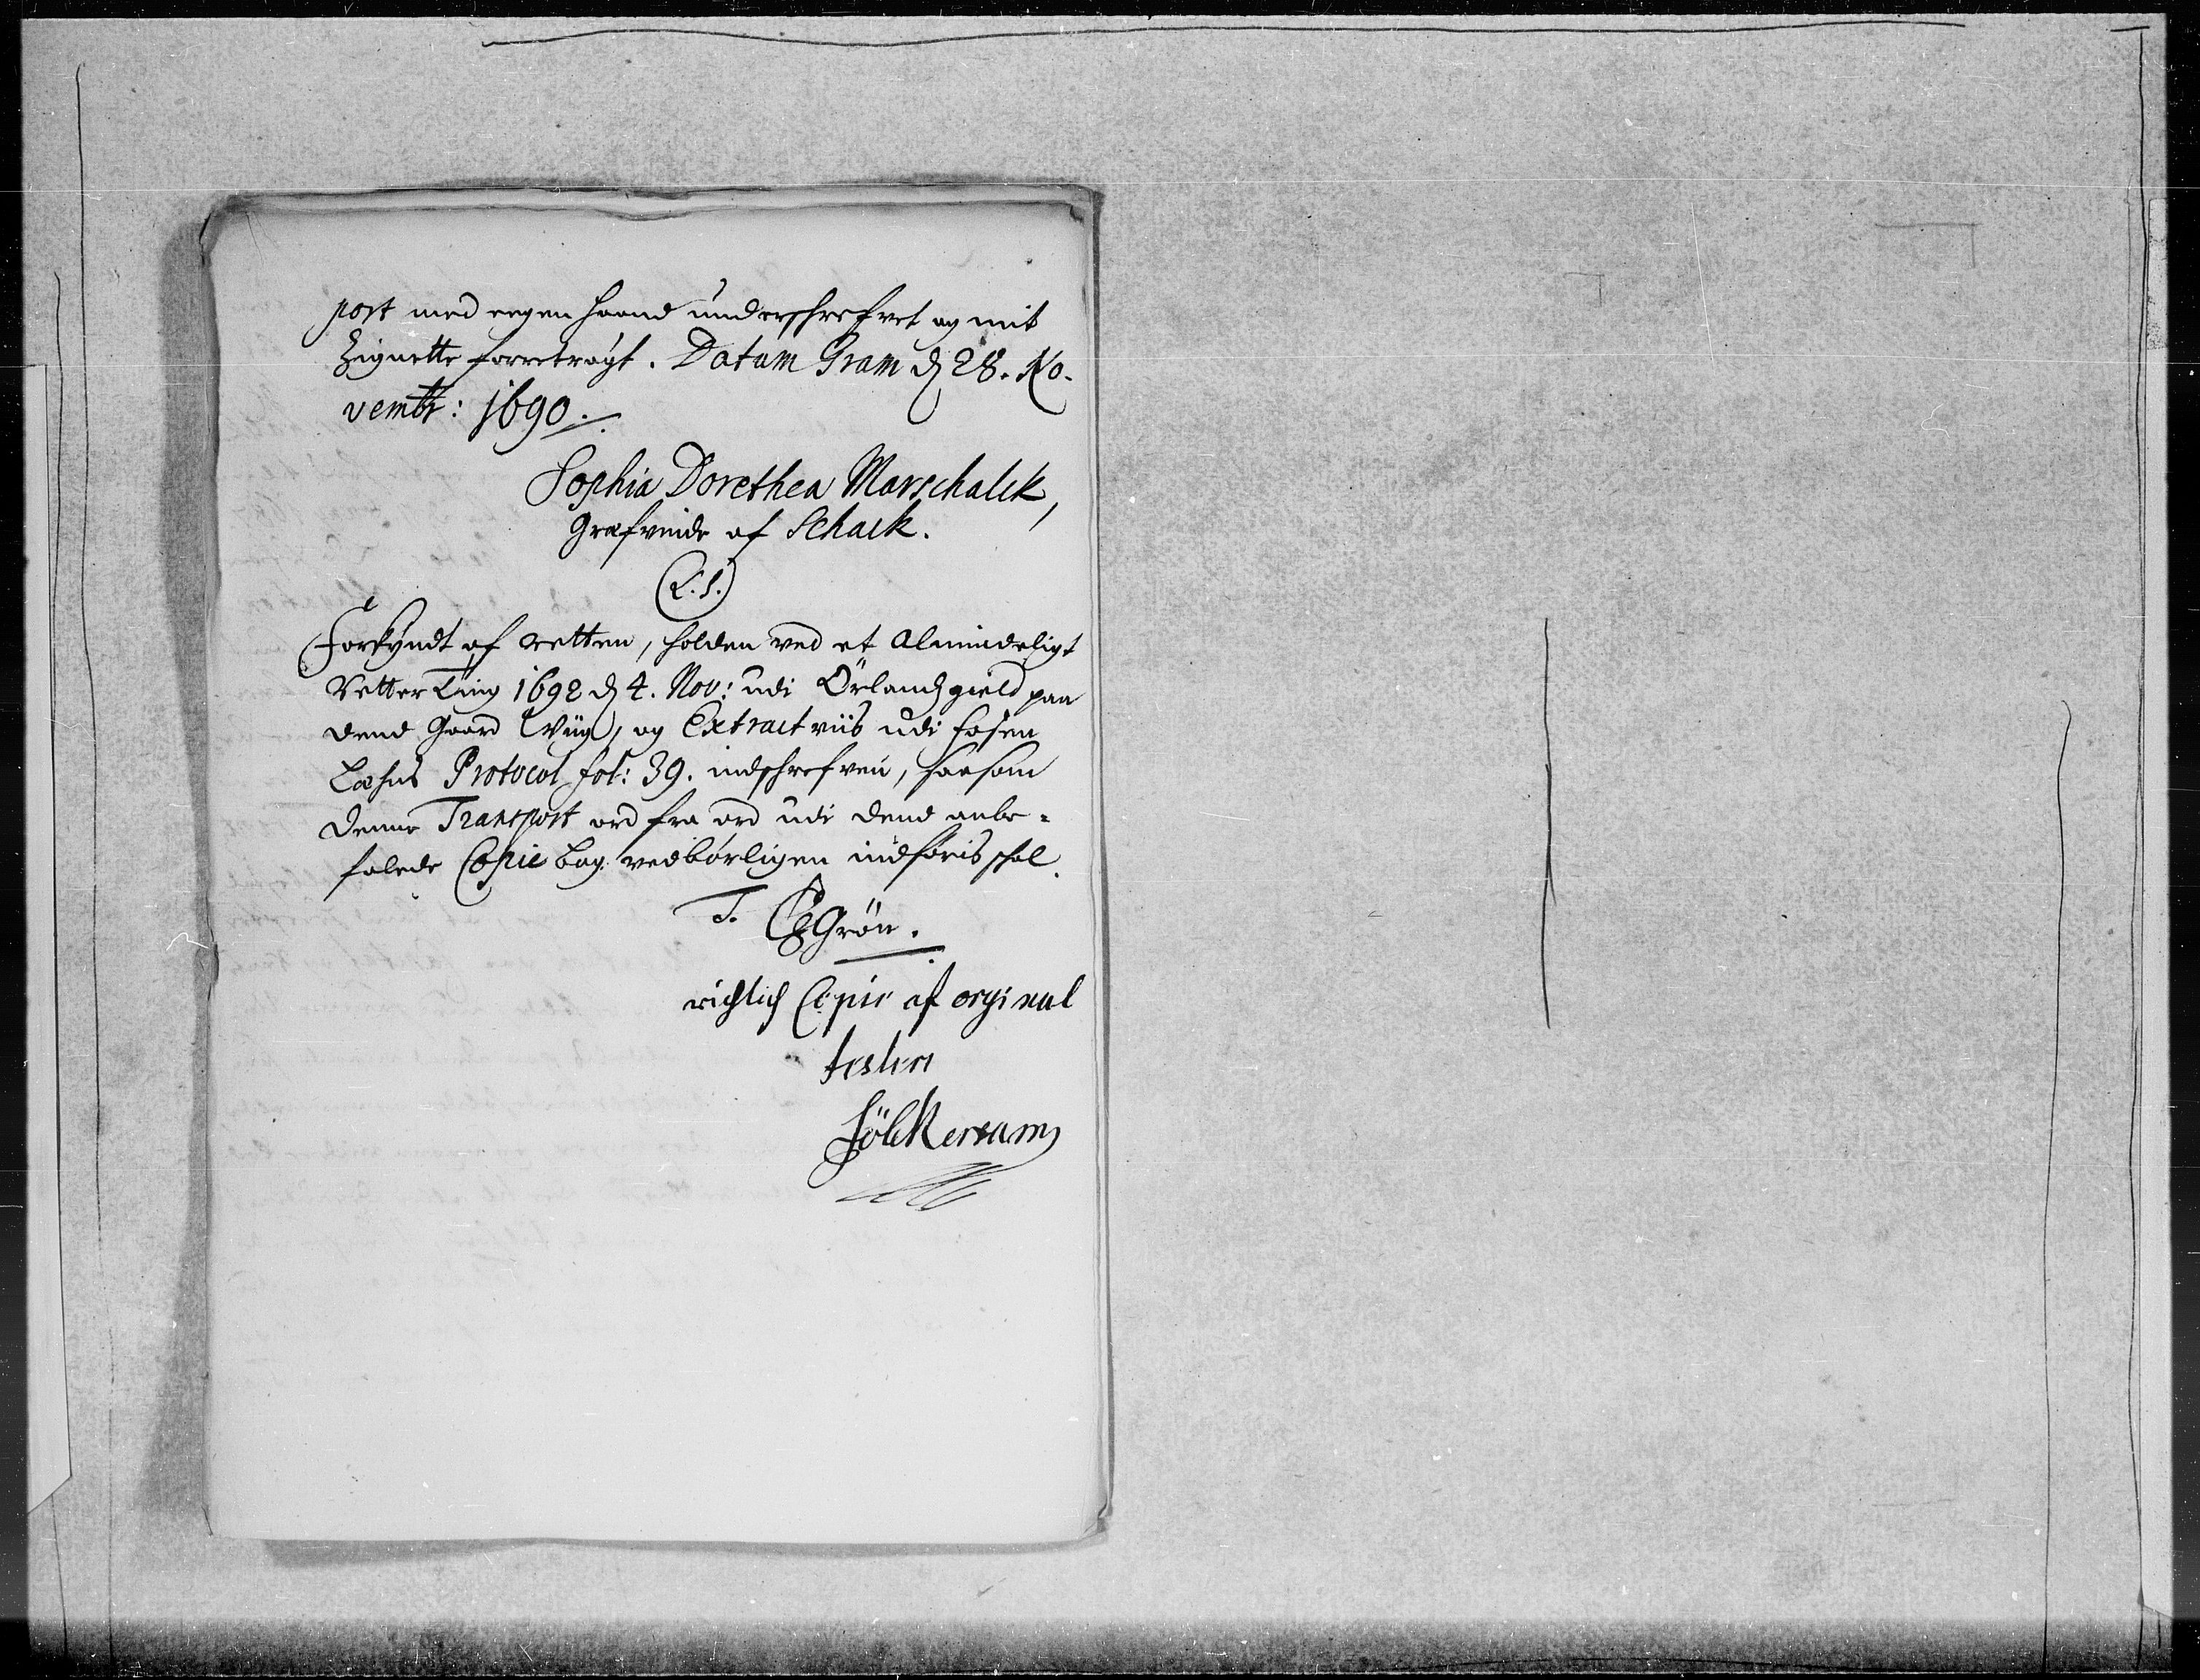 post med eegen haand underschrefvet og mit
Zignette forretrøgt. Datum Gram d 28. No-
vembr: 1690.
Sophia Dorethea Marschalck,
Græfvinde af Schack.
(L.S.)
Forkyndt af retten, holden ved et Almindeligt
Vetter Ting 1692 d 4. Nov: udi Örlands gield paa
dend Gaard Wiig, og Extract viis udi Fosen
Læhns Protocol fol: 39. indschrefven, saasom
denne Transport ord fra ord udi dend anbe-
falede Copie Bog vedbörligen indføris schal.
T. Grön.
richtich Copie af orginal
tester
Fölkersam